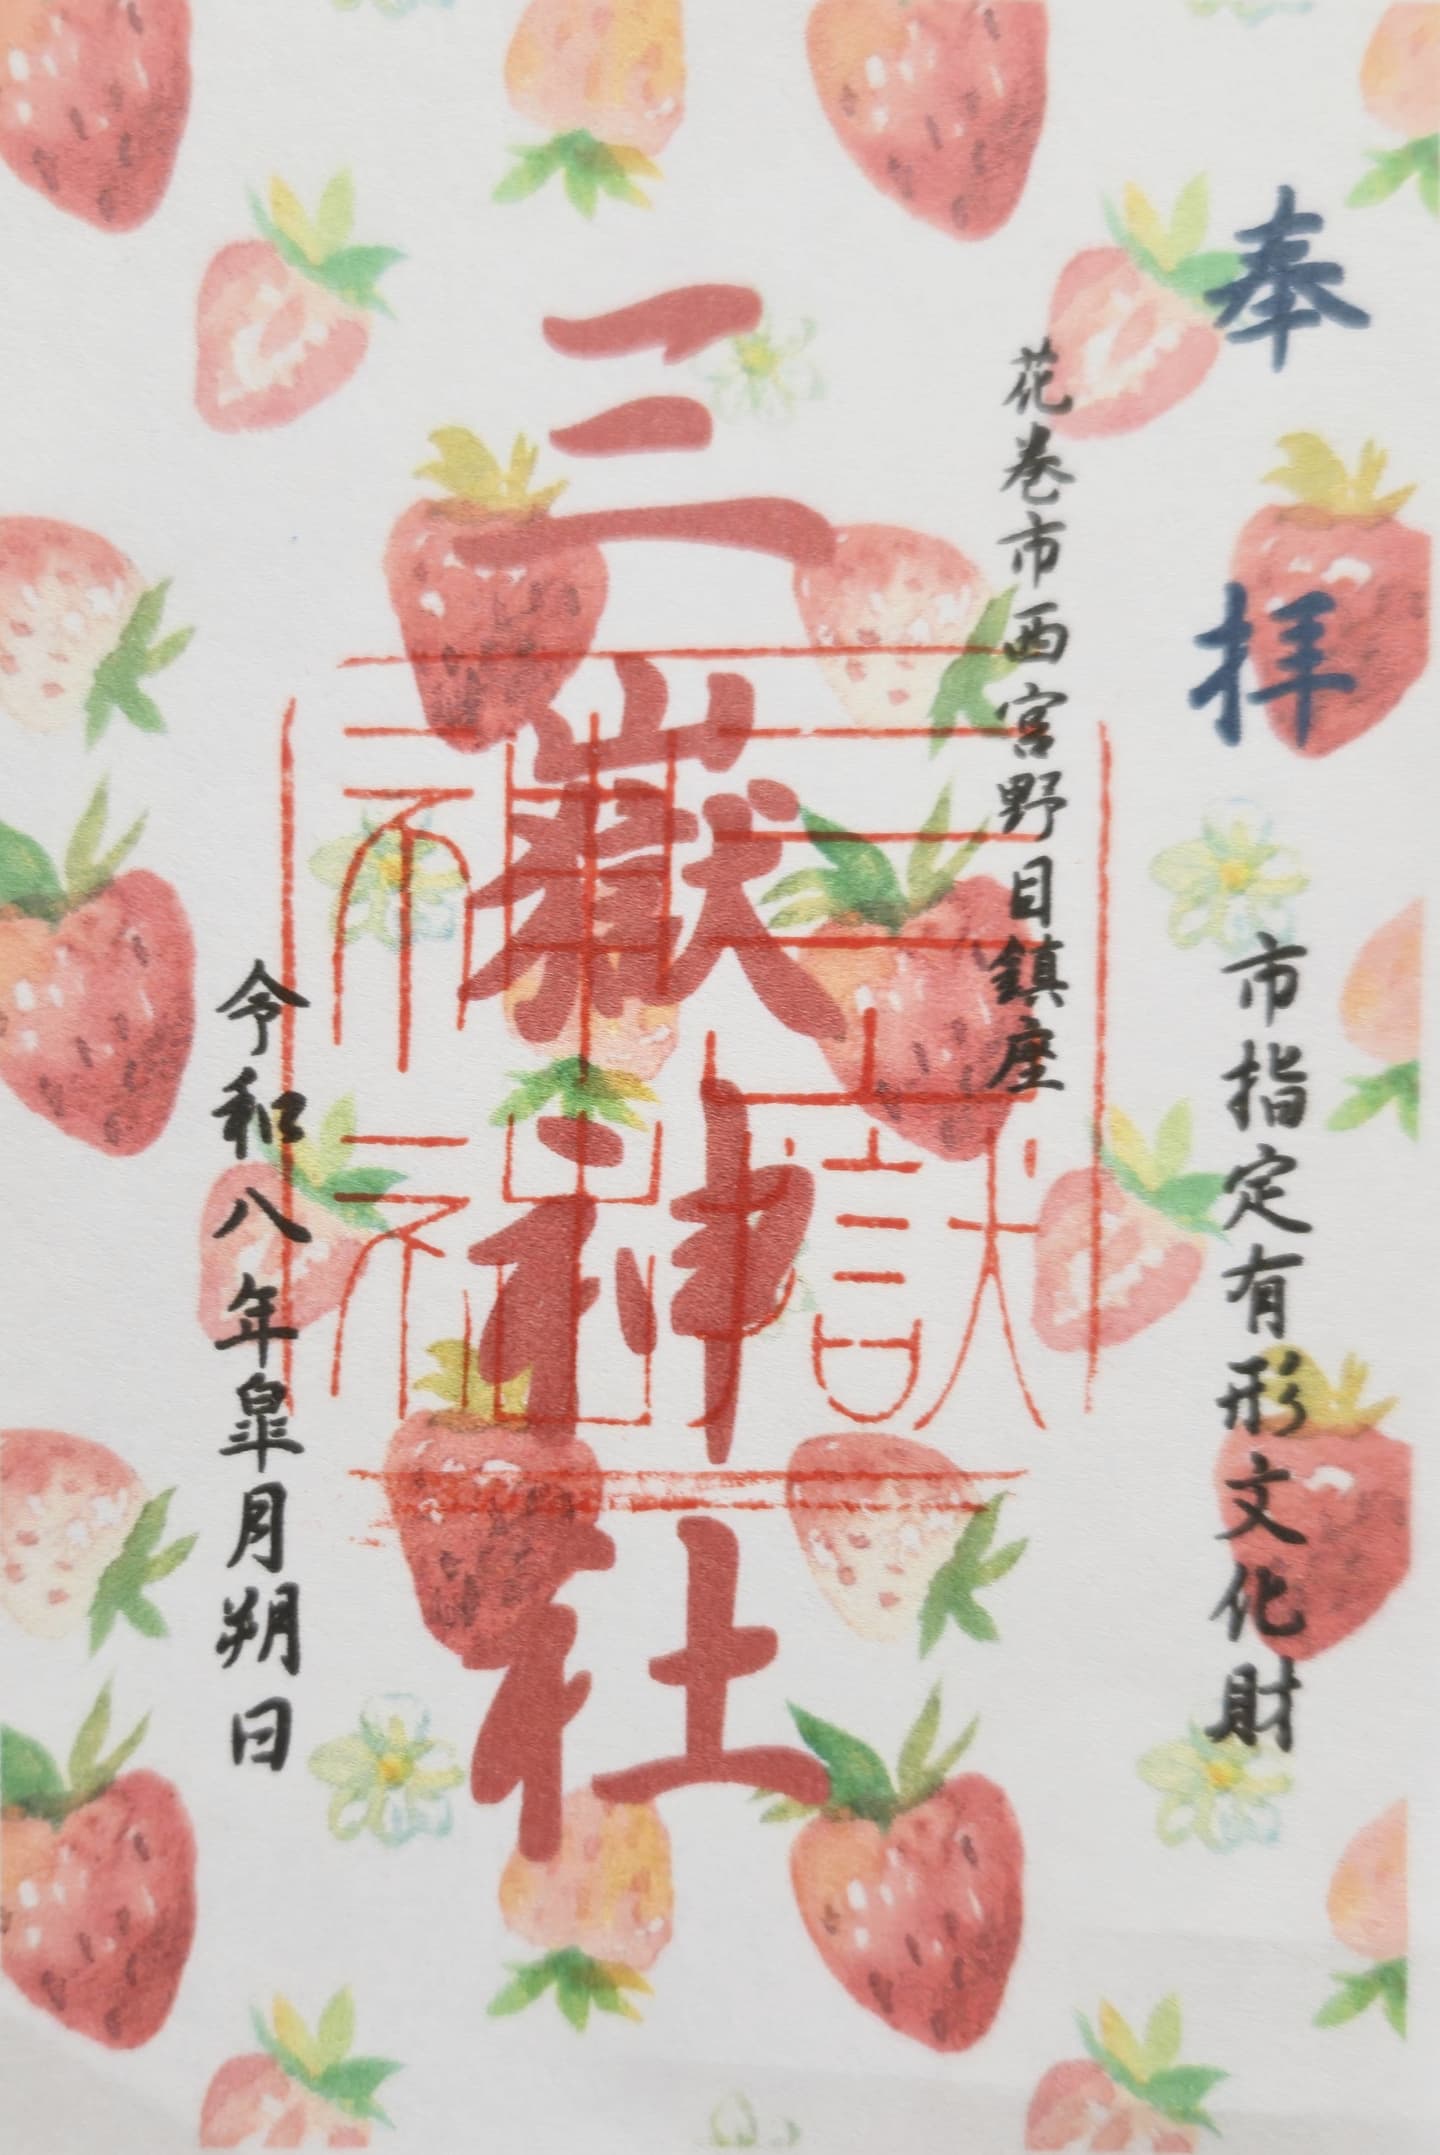 奉拝
市指定有形文化財
花巻市西宮野目鎮座
三嶽神社
三嶽神社
令和八年皐月朔日